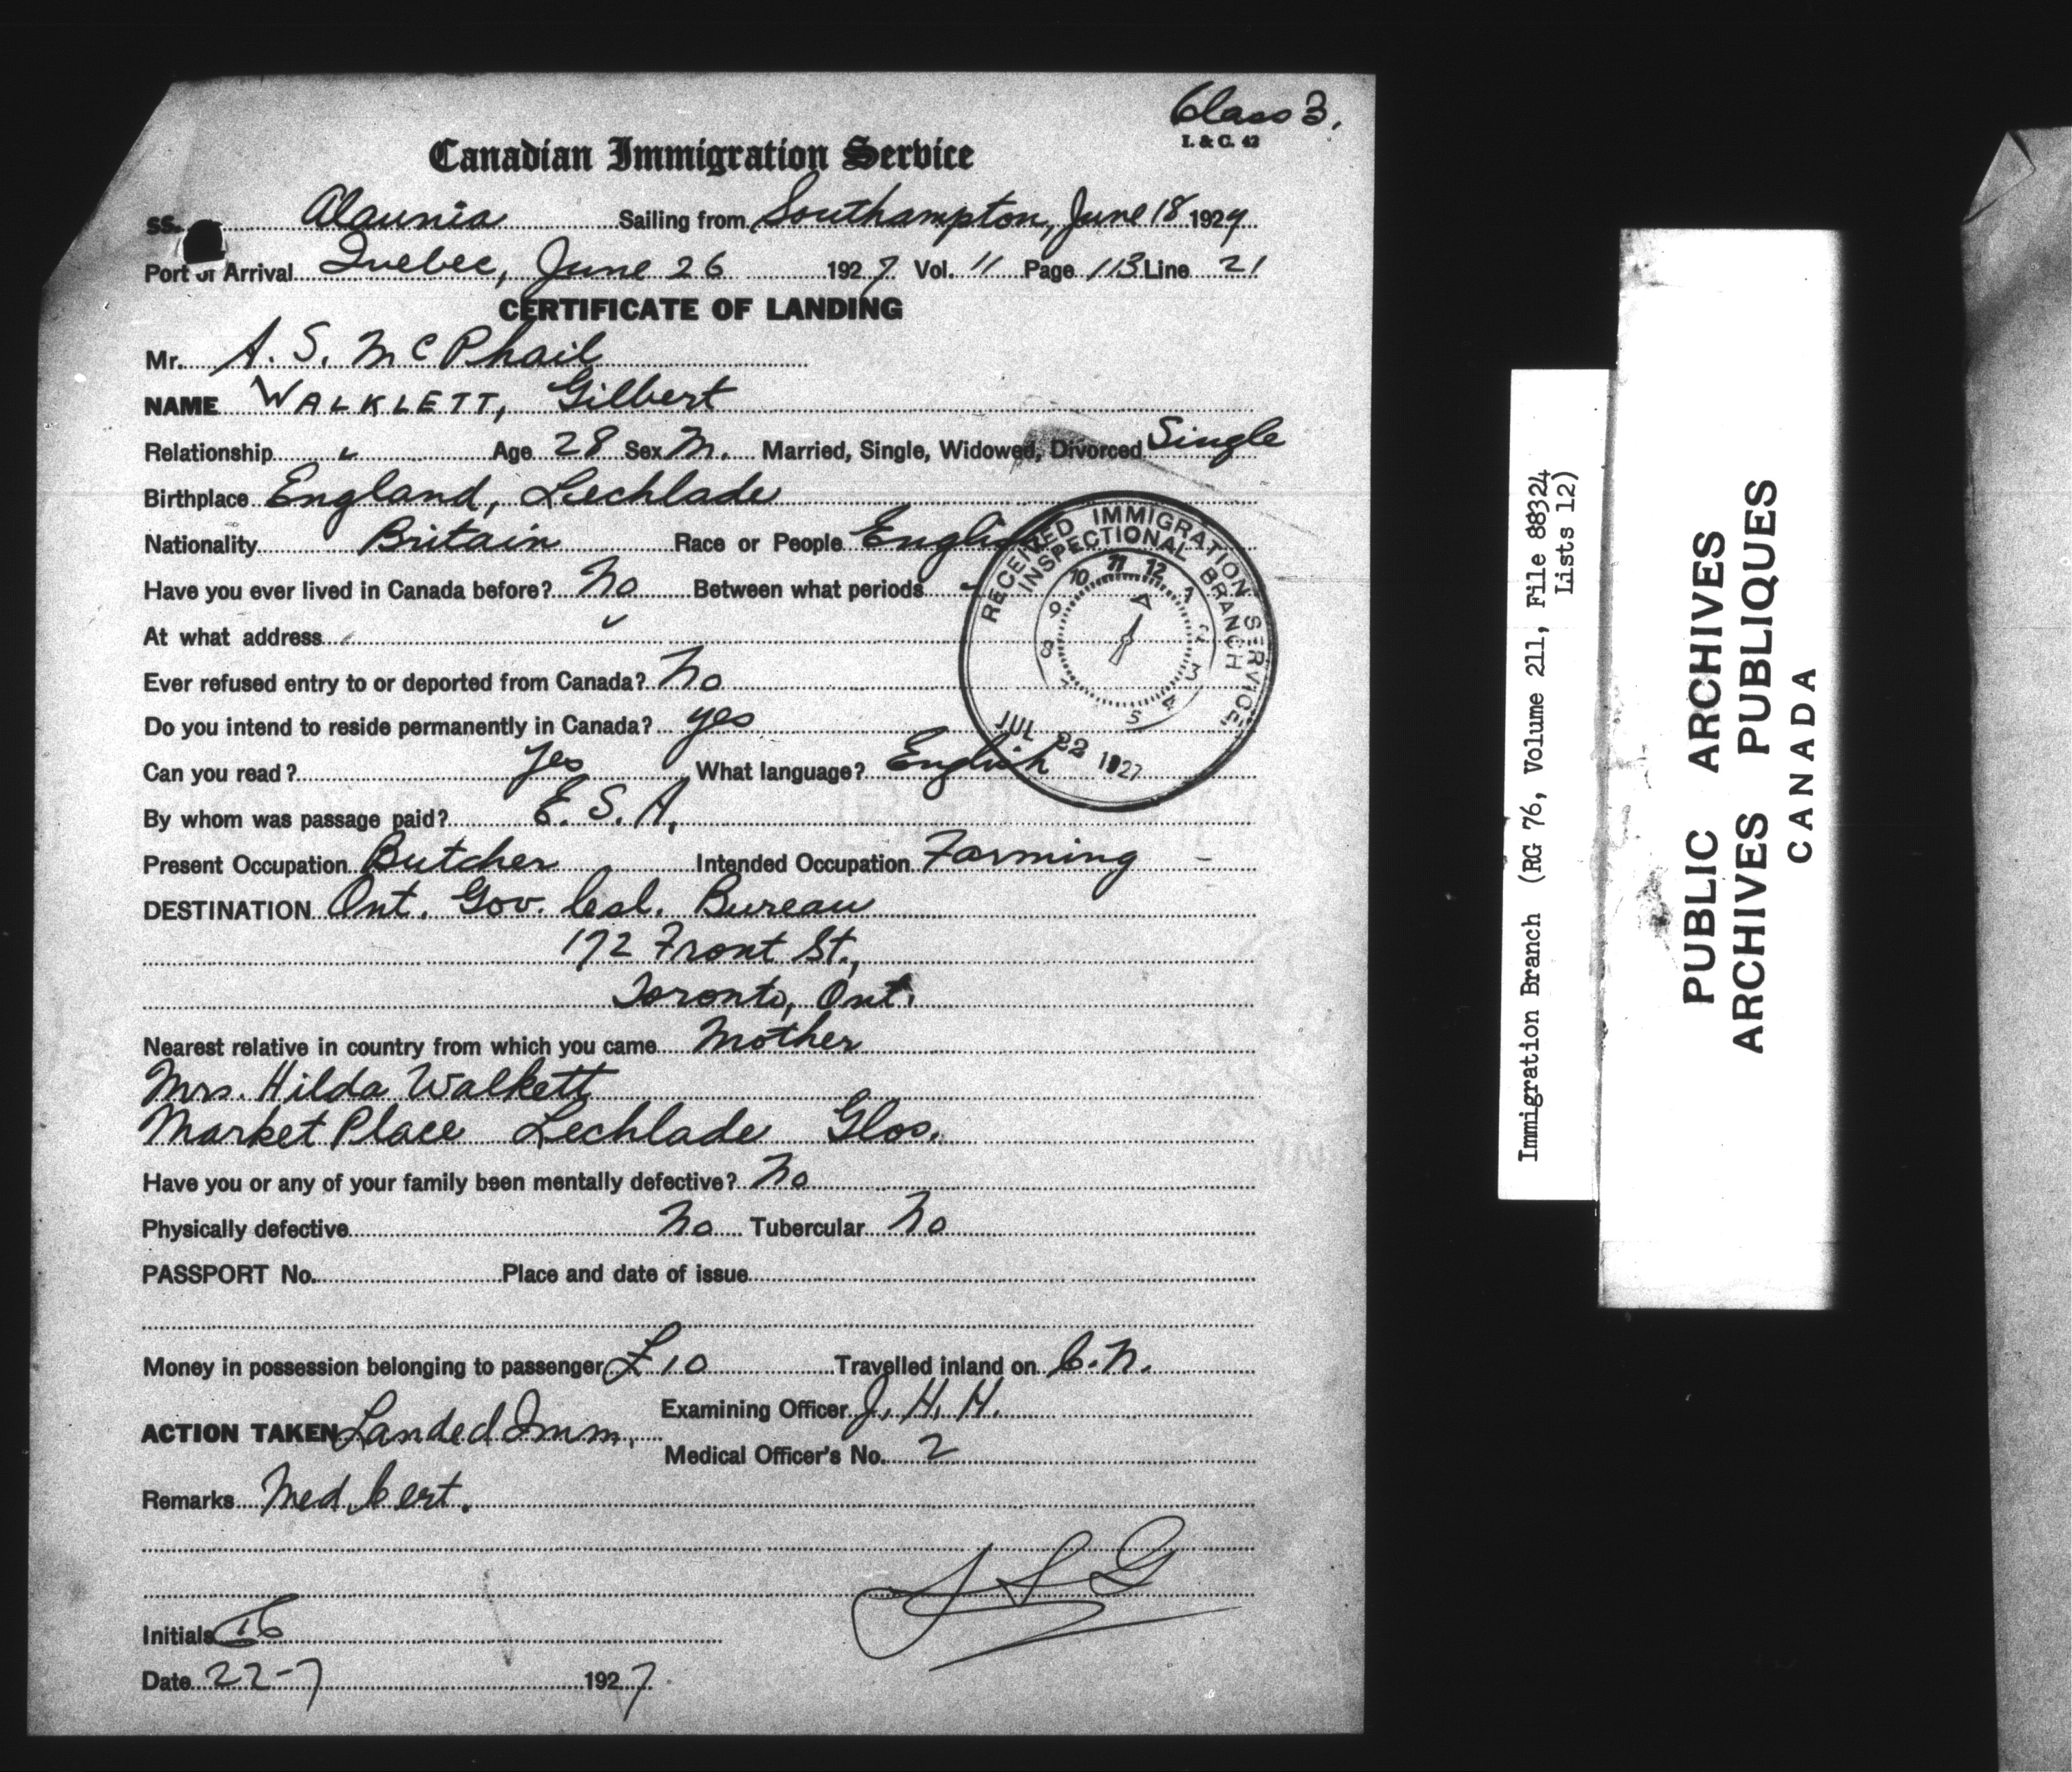 Class 3.
I. & C. 42
Canadian Immigration Service
SS. Alaunia Sailing from Southampton, June 18 1927
Port of Arrival Quebec, June 26 1927 Vol. 11 Page 113 Line 21
CERTIFICATE OF LANDING
Mr. A. S. McPhail
NAME WALKLETT, Gilbert
Relationship " Age 28 Sex M. Married, Single, Widowed, Divorced Single
Birthplace England, Lechlade
Nationality Britain Race or People English
Have you ever lived in Canada before? No Between what periods -
At what address
Ever refused entry to or deported from Canada? No
Do you intend to reside permanently in Canada? yes
Can you read? Yes What language? English
By whom was passage paid? E. S. A.
Present Occupation Butcher Intended Occupation Farming -
DESTINATION Ont. Gov. Col. Bureau
172 Front St.,
Toronto, Ont.
Nearest relative in country from which you came Mother
Mrs. Hilda Walkett
Market Place Lechlade Glos.
Have you or any of your family been mentally defective? No
Physically defective No Tubercular No
PASSPORT No. Place and date of issue
Money in possession belonging to passenger £10 Travelled inland on C.N.
Examining Officer J. H. H.
ACTION TAKEN Landed Imm.
Medical Officer's No. 2
Remarks Med. Cert.
Initials
Date 22-7 1927
RECEIVED IMMIGRATION SERVICE
INSPECTIONAL BRANCH
10 11 12 1 2 3 4 5 7 8 9
JUL 22 1927
Immigration Branch (RG 76, Volume 211, File 88324
Lists 12)
PUBLIC ARCHIVES
ARCHIVES PUBLIQUES
CANADA